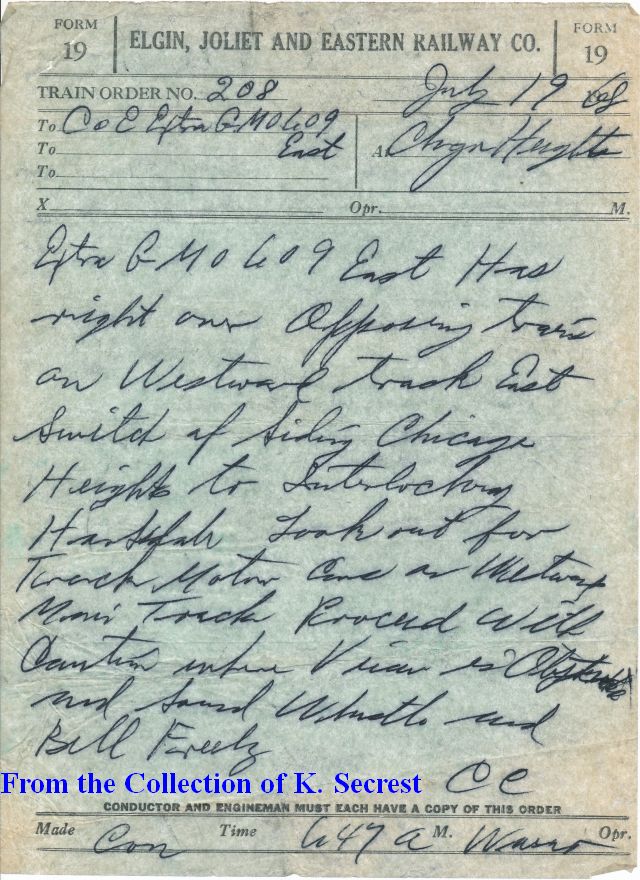 FORM 19
ELGIN, JOLIET AND EASTERN RAILWAY CO.
FORM 19
TRAIN ORDER NO. 208 July 19 1968
To C&E Extra GMO 609
To East At Chgo Heights
To
X Opr. M.
Extra GMO 609 East Has
right over Opposing trains
on Westward track East
Switch of Siding Chicago
Heights to Interlocking
Hartsdale Look out for
Track Motor Cars on Westward
Main Track Proceed With
Caution where View is Obstructed
and Sound Whistle and
Bell Freely
CC
From the Collection of K. Secrest
CONDUCTOR AND ENGINEMAN MUST EACH HAVE A COPY OF THIS ORDER
Made Com Time 647 A M. Opr.